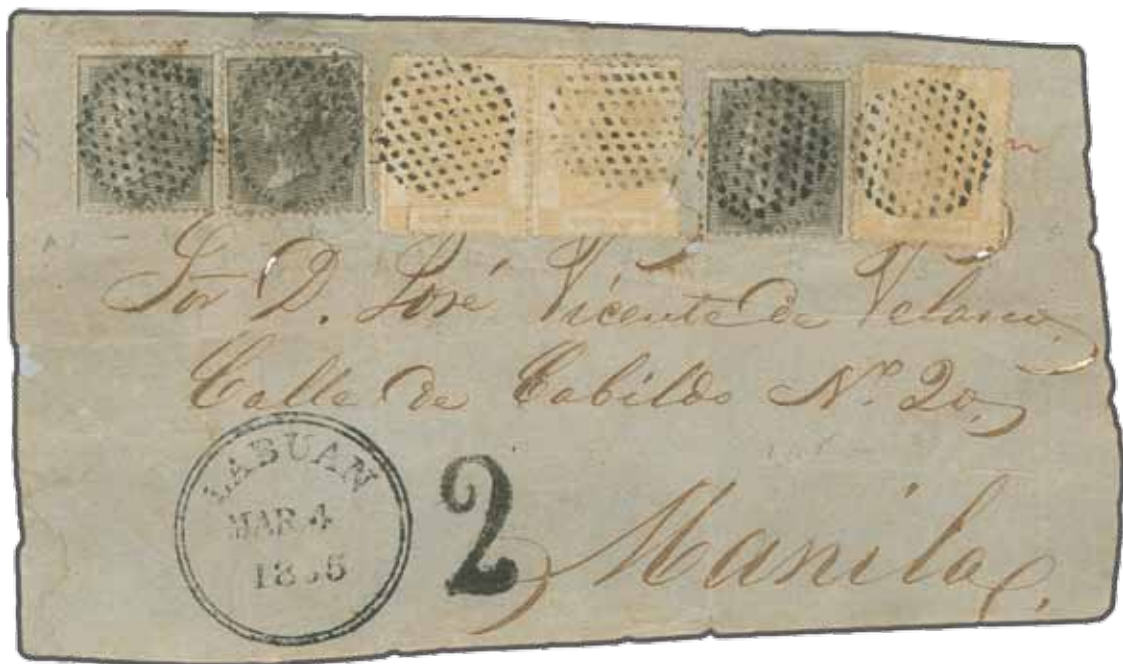 Sor D. José Vicente de Velasco,
Calle de Cabildo Nº 20,
LABUAN
MAR 4
2
Manila